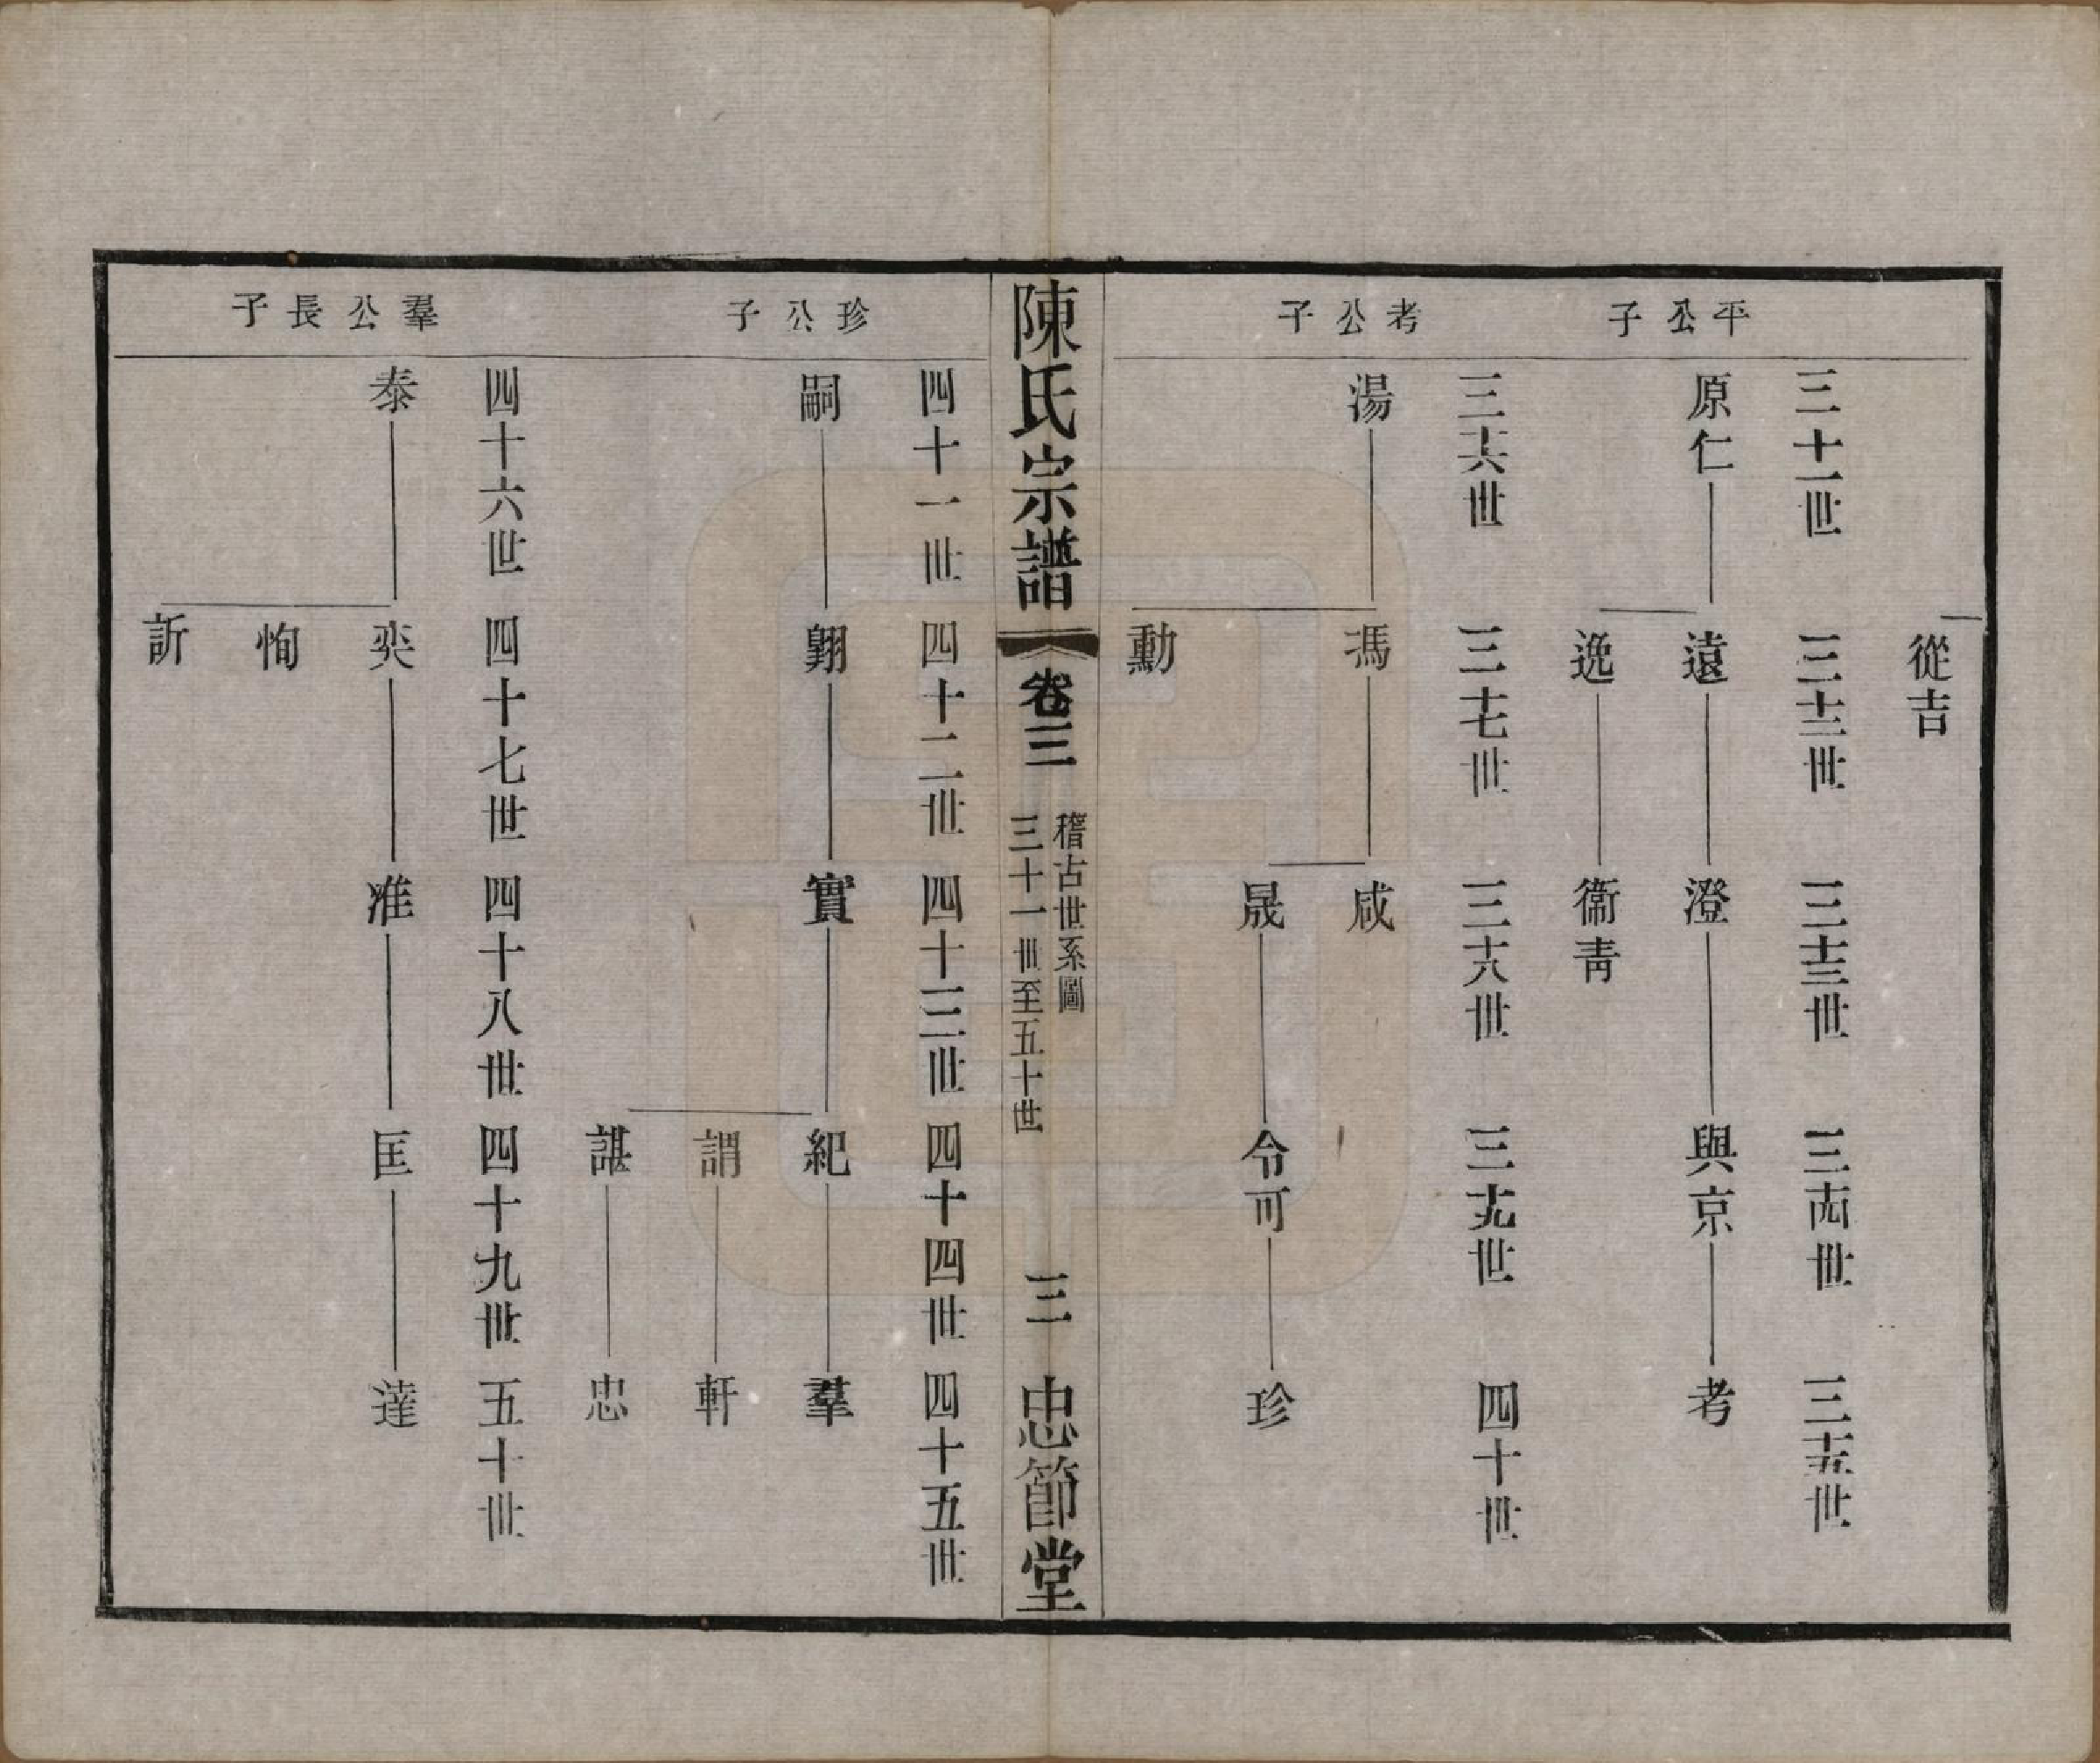 從吉
平公子
三十一世 三十二世 三十三世 三十四世 三十五世
原仁 遠 澄 與京 考
逸 衞青
考公子
三十六世 三十七世 三十八世 三十九世 四十世
湯 馮 咸
晟 令可 珍
勳
陳氏宗譜 卷三 稽古世系圖 三十一世至五十世 三 忠節堂
珍公子
四十一世 四十二世 四十三世 四十四世 四十五世
嗣 翺 實 紀 羣
謂 軒
諶 忠
羣公長子
四十六世 四十七世 四十八世 四十九世 五十世
泰 奕 准 匡 達
恂
訢